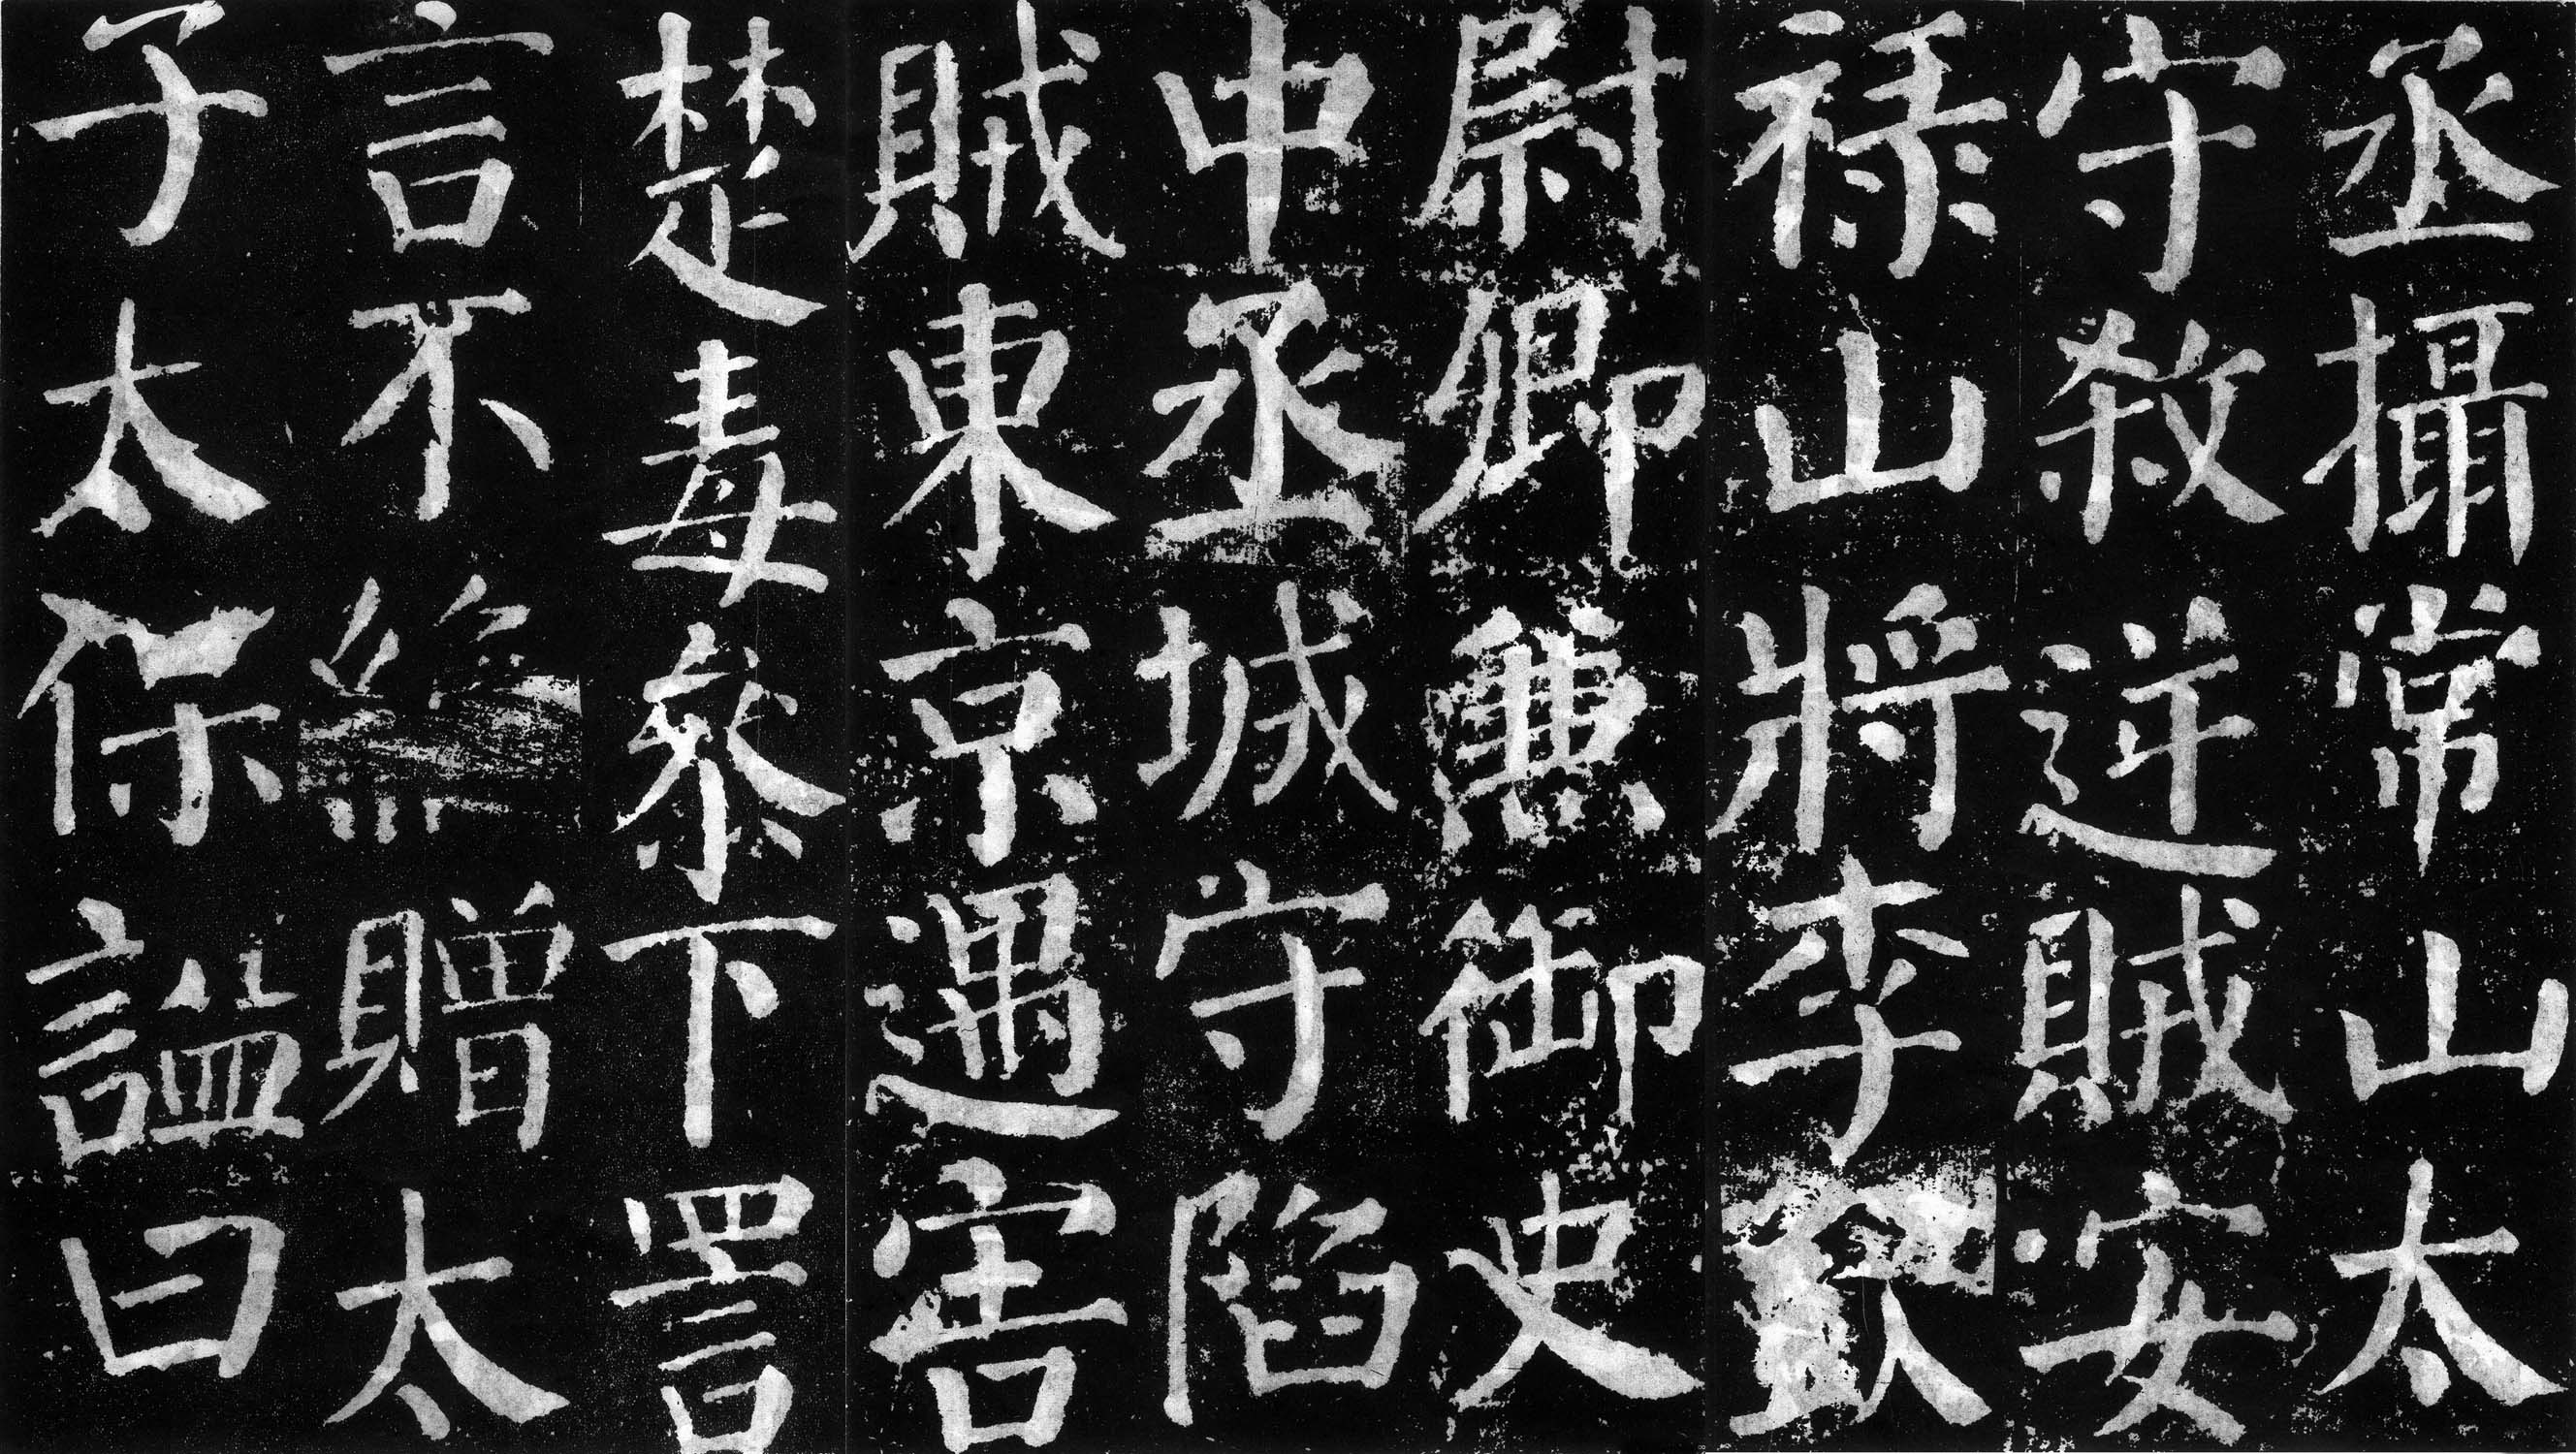 丞攝常山太
守殺逆賊安
禄山將李欽
尉卿兼御史
中丞城守陷
賊東京遇害
楚毒參下詈
言不絶贈太
子太保謚曰